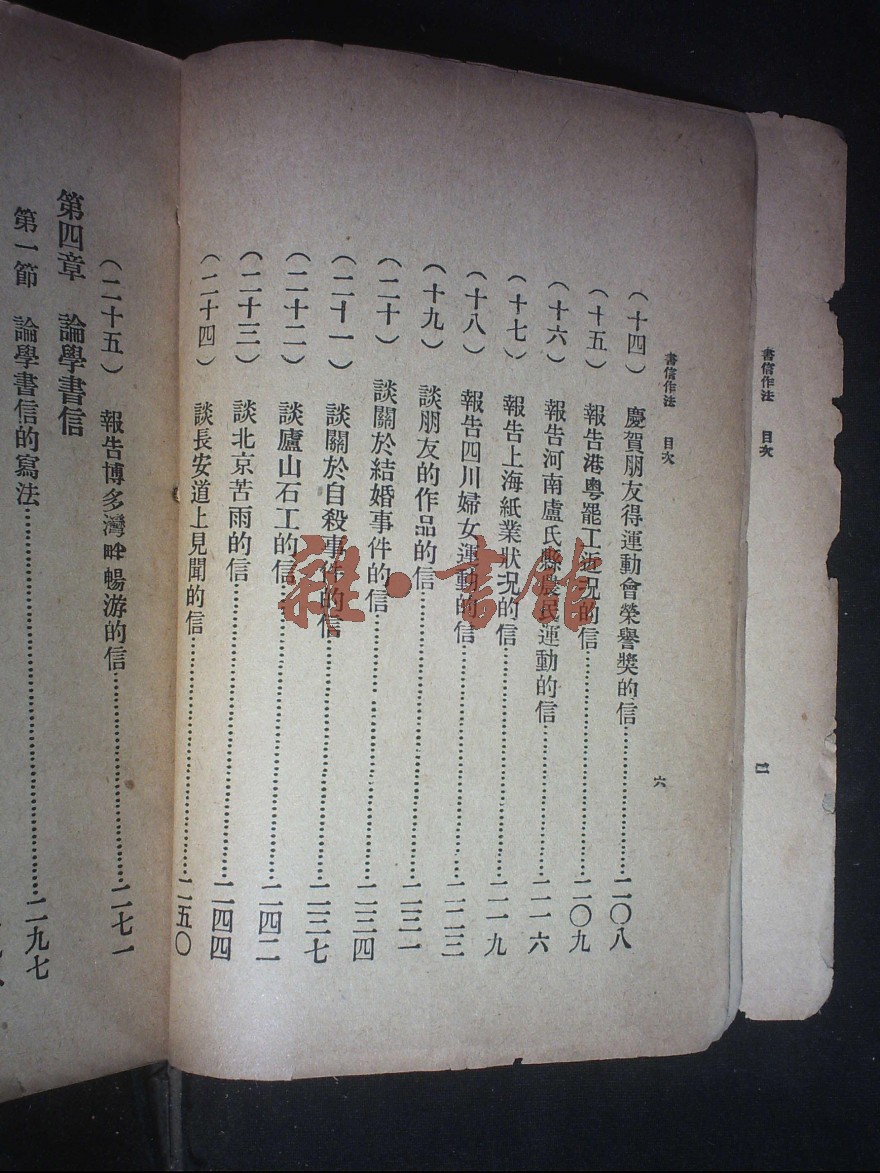 書信作法 目次
書信作法 目次 六
(十四) 慶賀朋友得運動會榮譽獎的信…………二〇八
(十五) 報告港粵罷工近况的信…………二〇九
(十六) 報告河南盧氏縣農民運動的信…………二一六
(十七) 報告上海紙業狀况的信…………二一九
(十八) 報告四川婦女運動的信…………二二三
(十九) 談朋友的作品的信…………二三一
(二十) 談關於結婚事件的信…………二三四
(二十一) 談關於自殺事件的信…………二三七
(二十二) 談廬山石工的信…………二四二
(二十三) 談北京苦雨的信…………二四四
(二十四) 談長安道上見聞的信…………二五〇
(二十五) 報告博多灣畔暢游的信…………二七一
第四章 論學書信
第一節 論學書信的寫法…………二九七
雜·書館